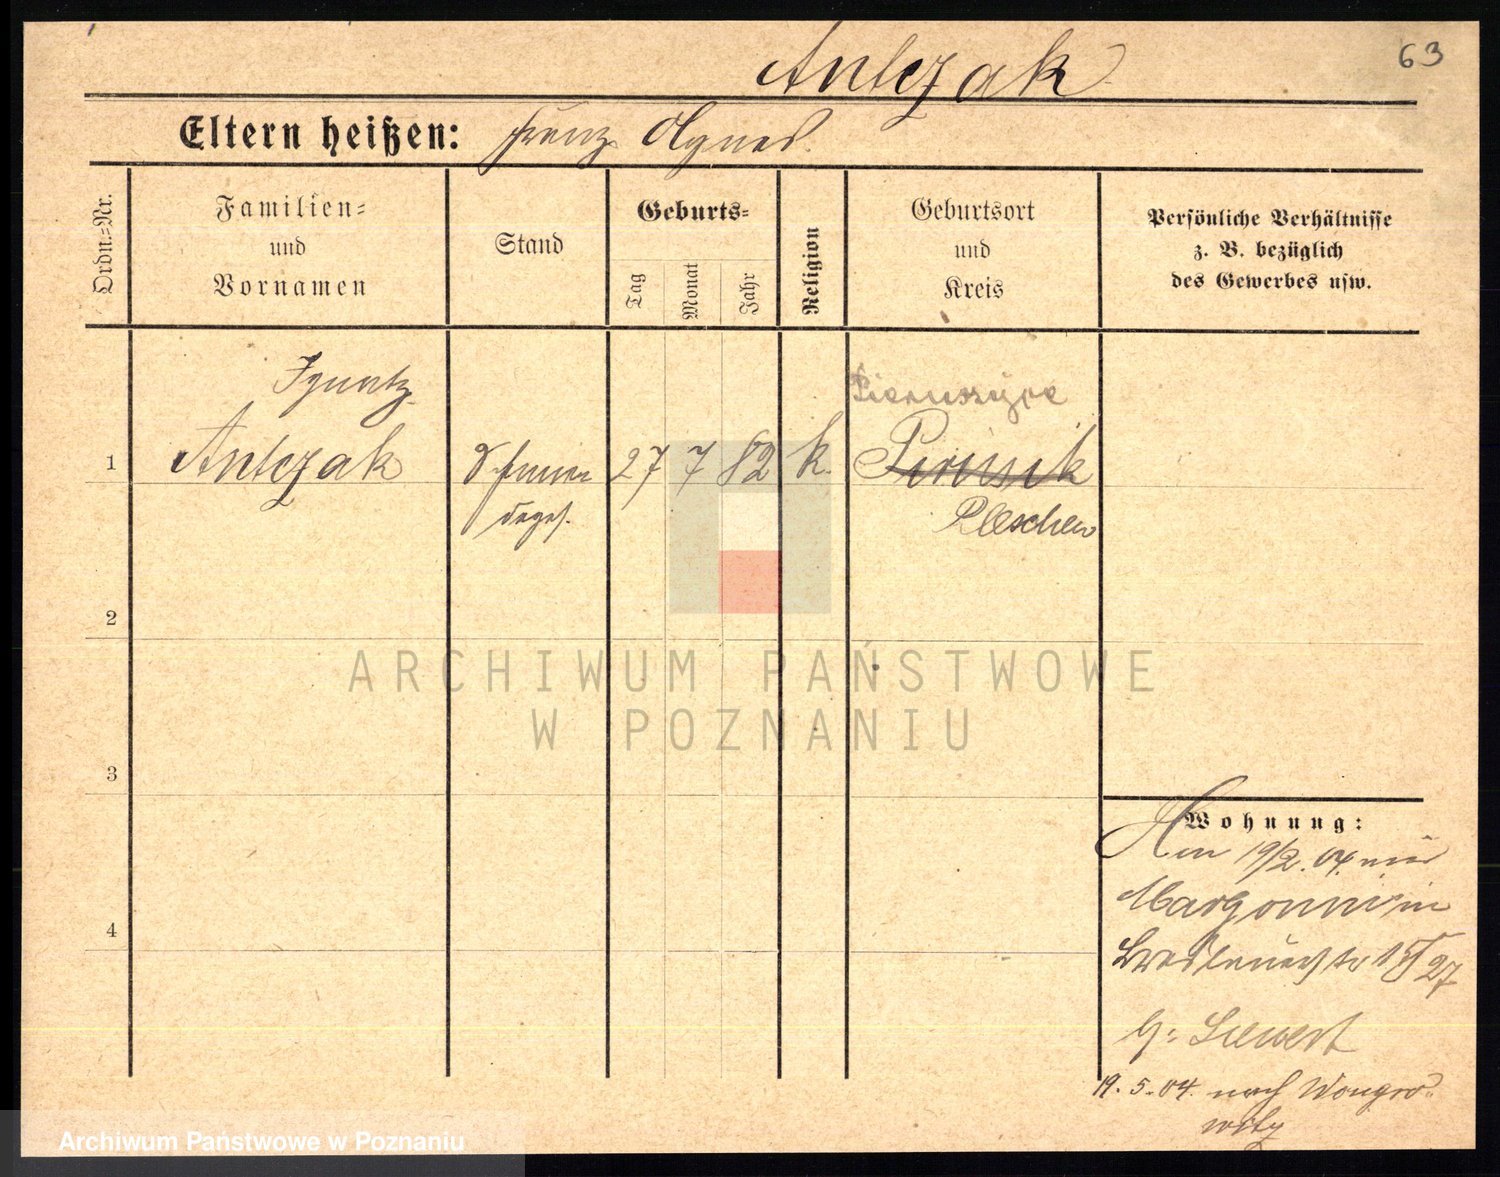 Antczak
63
Eltern heißen: Franz Agnes.
Ordn.=Nr.
Familien=
und
Vornamen
Stand
Geburts=
Tag
Monat
Jahr
Religion
Geburtsort
und
Kreis
Persönliche Verhältnisse
z. B. bezüglich
des Gewerbes usw.
Ignatz
1 Antczak
27 7 82 k.
Pleschen
2
3
4
Wohnung:
19/2. 04.
Margonin
27
b: Siewert
19. 5. 04. nach Wongro=
witz
ARCHIWUM PAŃSTWOWE
W POZNANIU
Archiwum Państwowe w Poznaniu